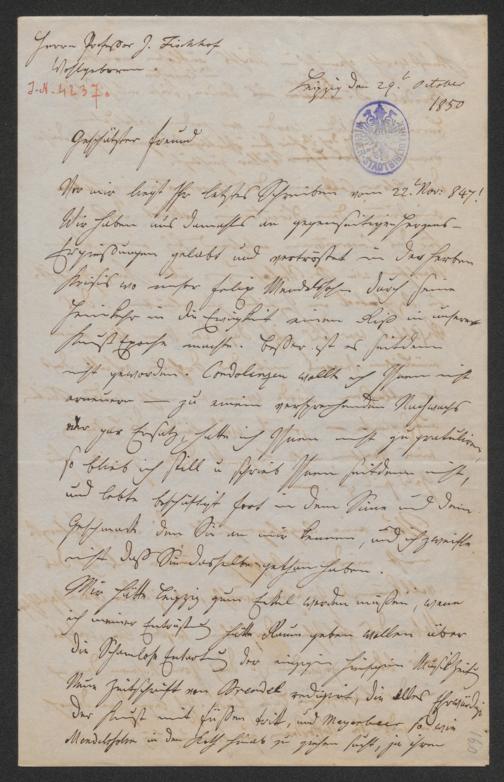 Herrn Professor J. Fischhof
Wohlgeboren.
J.-N. 4237.
Leipzig den 29t October
1850
Geschätzter Freund
Vor mir liegt Ihr letztes Schreiben vom 22t Nov: 847!
Wir haben uns damahls an gegenseitigen Herzens-
Ergießungen gelabt und getröstet in der herben
Krisis wo unser Felix Mendelsohn durch seine
Heimkehr in die Ewigkeit einen Riß in unserer
Kunst Epoche machte. Besser ist es seitdem
nicht geworden. Condolenzen wollte ich Ihnen nicht
erneuern — zu einem versprechenden Nachwuchs
oder gar Ersatz, hatte ich Ihnen nicht zu gratuliren,
so blieb ich still u schrieb Ihnen seitdem nicht,
und lebte beschäftigt fort in dem Sinne und dem
Geschmack den Sie an mir kennen, und ich zweifle
nicht daß Sie dasselbe gethan haben.
Mir hätte Leipzig zum Ekel werden müßen, wenn
ich meiner Entrüstung hätte Raum geben wollen über
die Schamlose Entartung der einzigen hiesigen Musikzeitung
Neue Zeitschrift von Brendel redigirt, die alles Ehrwürdige
der Kunst mit Füßen tritt, und Meyerbeer so wie
Mendelsohn in den Koth hinab zu ziehen sucht, ja ihren